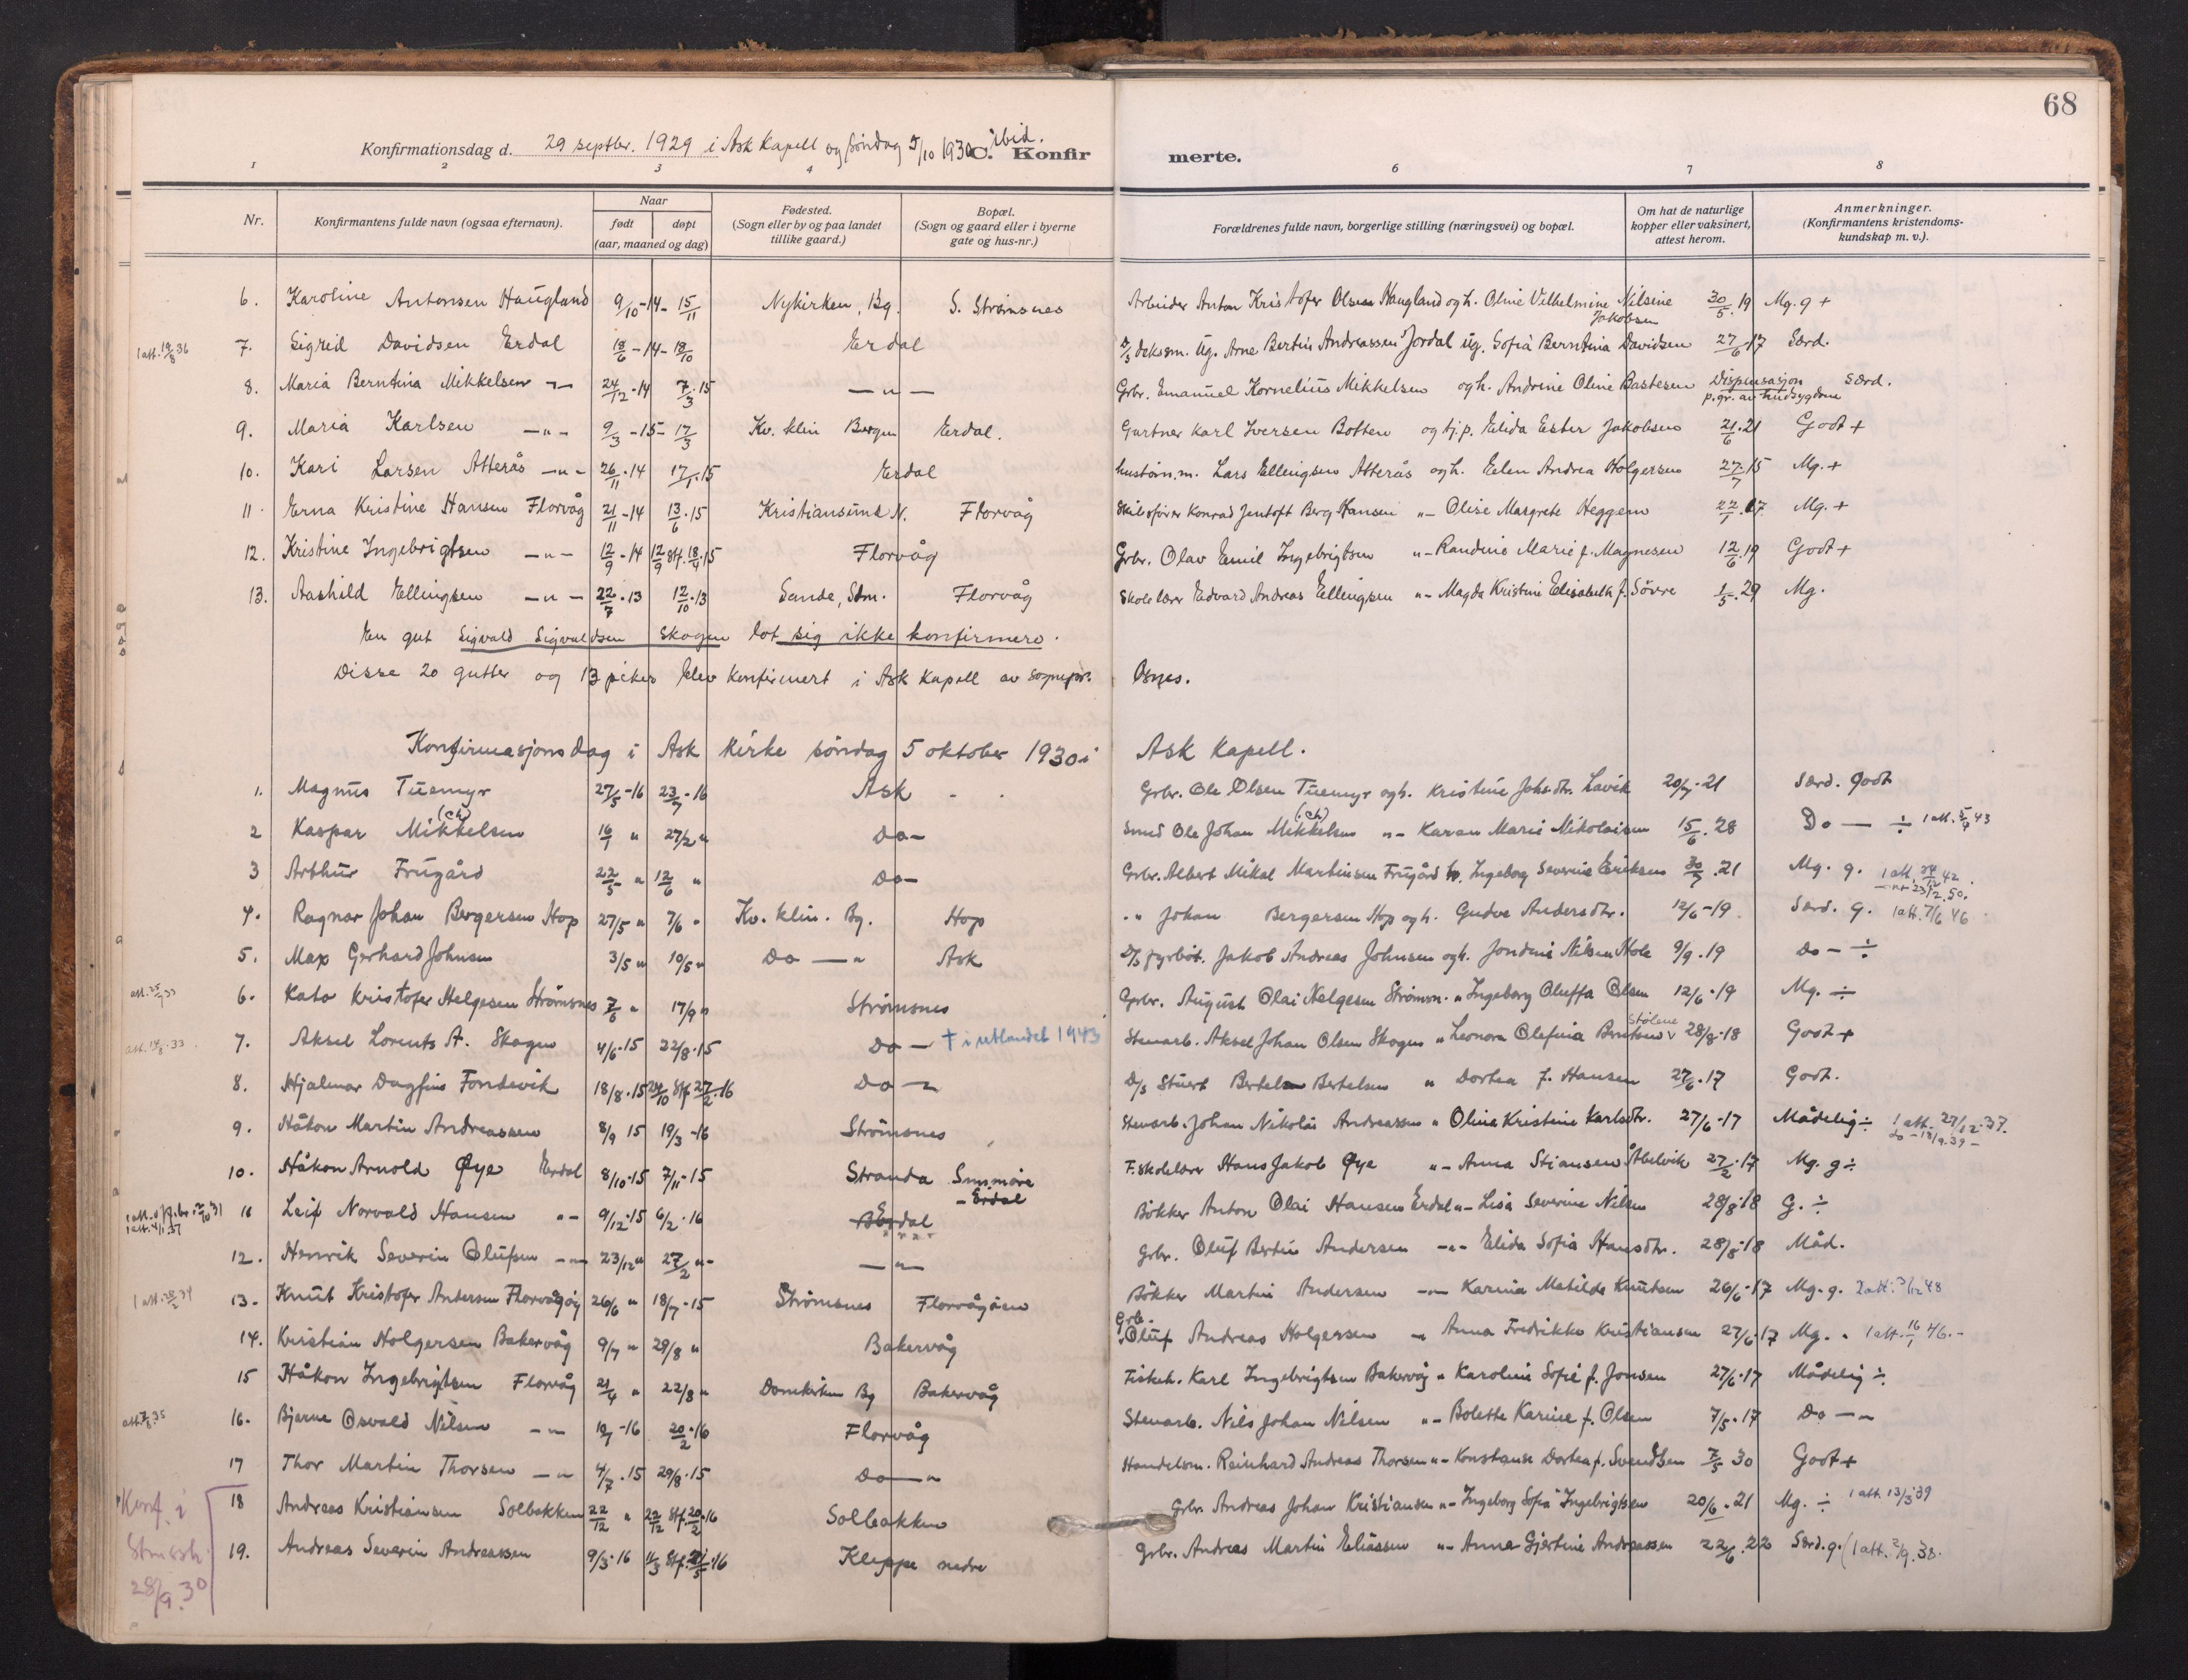 68
Konfirmationsdag d. 29 septbr. 1929 i Ask Kapell og søndag 5/10 1930 ibid. C. Konfirmerte.
1 2 3 4 6 7 8
Nr. Konfirmantens fulde navn (ogsaa efternavn). Naar født døpt (aar, maaned og dag) Fødested. (Sogn eller by og paa landet tillike gaard.) Bopæl. (Sogn og gaard eller i byerne gate og hus-nr.) Forældrenes fulde navn, borgerlige stilling (næringsvei) og bopæl. Om hat de naturlige kopper eller vaksinert, attest herom. Anmerkninger. (Konfirmantens kristendomskundskap m. v.).
6. Karoline Antonsen Haugland 9/10-14- 15/11 Nykirken, Bg. S. Strømsnes Arbeider Anton Kristofer Olsen Haugland og h. Oline Vilhelmine Nilsine Jakobsen 30/5.19 Mg. g +
1 att. 19/8 36 7. Sigrid Davidsen Erdal 18/6-14- 18/10 Erdal D/s deksm. Ug. Arne Bertin Andreassen Jordal ug. Sofia Berntina Davidsen 27/6-17 Særd.
8. Maria Berntina Mikkelsen -"- 24/12-14 7/3.15 -"- Grbr. Emanuel Kornelius Mikkelsen og h. Andrine Oline Bastesen Dispensasjon p.gr. av hudsygdom Særd.
9. Maria Karlsen -"- 9/3-15- 17/3 Kv. klin Bergen Erdal. Gartner Karl Iversen Botten og tj.p. Elida Ester Jakobsen 21/6.21 Godt +
10. Kari Larsen Atterås -"- 26/11.14 17/1.15 Erdal Lars Ellingsen Atterås og h. Elen Andrea Holgersen 27/7.15 Mg. +
11. Erna Kristine Hansen Florvåg 21/11-14 13/6.15 Kristiansund N. Florvåg Skibsfører Konrad Jentoft Berg Hansen "- Olise Margrete Heggem 22/1.17 Mg. +
12. Kristine Ingebrigtsen -"- 12/9-14 12/9 Stf. 18/4.15 Florvåg Grbr. Olav Emil Ingebrigtsen "- Randine Marie f. Magnesen 12/6.19 Godt +
13. Aashild Ellingsen -"- 22/7.13 12/10.13 Sande, Sdm. Florvåg Skolelærer Edvard Andreas Ellingsen "- Magda Kristine Elisabeth f. Søvre 1/5.29 Mg.
En gut Sigvald Sigvaldsen Skogen lot sig ikke konfirmere.
Disse 20 gutter og 13 piker blev konfirmert i Ask Kapell av sognepr. Osnes.
Konfirmasjonsdag i Ask kirke søndag 5 oktober 1930 i Ask Kapell.
1. Magnus Tuemyr 27/5-16 23/7-16 Ask Grbr. Ole Olsen Tuemyr og h. Kristine Johsdtr. Lavik 20/7-21 Særd. godt
2 Kaspar Mikkelsen (ch) 16/1 " 27/2 " Do- Smed Ole Johan Mikkelsen (ch) "- Karen Marie Nikolaisen 15/6.28 Do - ÷ 1 att. 5/4 43
3 Arthur Frugård 22/3 " 12/6 " Do- Grbr. Albert Mikal Martinsen Frugård h. Ingeborg Severine Eriksen 30/7.21 Mg. g. 1 att. 24/12 42. -"- 23/2.50.
4. Ragnar Johan Bergersen Hop 27/5 " 7/6 " Kv. klin. Bg. Hop -" Johan Bergersen Hop og h. Gudve Andersdtr. 12/6-19 Særd. g. 1 att. 7/6 46
5. Max Gerhard Johnsen 3/5 " 10/5 " Do - " Ask D/s fyrbøt. Jakob Andreas Johnsen og h. Jondine Nilsen Hole 9/9.19 Do - ÷
att. 25/7 33 6. Kato Kristofer Helgesen Strømsnes 7/6 " 17/9 " Strømsnes Grbr. August Olai Helgesen Strømsn. " Ingeborg Oluffa Olsen 12/6.19 Mg. ÷
7. Aksel Lorents A. Skogen 4/6.15 22/8.15 Do - † i utlandet 1943 Stenarb. Aksel Johan Olsen Skogen " Leonora Olefina Berntsen Stølene 28/8.18 Godt +
8. Hjalmar Dagfin Fondevik 18/8.15 24/10 Stf. 27/2.16 Do - " D/s Stuert Bertel Bertelsen " Dortea f. Hansen 27/6.17 Godt.
9. Håkon Martin Andreassen 8/9 15 19/3-16 Strømsnes Stenarb. Johan Nikolai Andreassen " Oline Kristine Karlsdtr. 27/6-17 Mådelig ÷ 1 att. 27/12.37. do - 18/9.39 -
10. Håkon Arnold Øye Erdal 8/10.15 7/11-15 Stranda Sunmøre - Erdal F.skolelærer Hans Jakob Øye "- Anna Stiansen Åbelvik 27/2.17 Mg. g ÷
1 att. 4/1.37 11 Leif Norvald Hansen "- 9/12.15 6/2.16 Erdal Bøkker Anton Olai Hansen Erdal "- Lisa Severine Nilsen 28/8.18 G. ÷
12. Henrik Severin Olufsen -"- 23/12 " 27/2 "- -"- Grbr. Oluf Bertin Andersen -"- Elida Sofia Hansdtr. 28/8.18 Måd.
1 att. 28/2 34 13. Knut Kristofer Andersen Florvågøy 26/6 " 18/7.15 Strømsnes Florvågøen Bøkker Martin Andersen -"- Karina Matilde Knutsen 26/6.17 Mg. g. 2 att. 3/12 48
14. Kristian Holgersen Bakervåg 9/7 " 29/8 " Bakervåg Grb. Oluf Andreas Holgersen " Anna Fredrikke Kristiansen 27/6.17 Mg. " 1 att. 16/1 46.-
15 Håkon Ingebrigtsen Florvåg 21/4 " 22/8 " Domkirken Bg Bakervåg Fiskeh. Karl Ingebrigtsen Bakervåg " Karoline Sofie f. Jonsen 27/6.17 Mådelig ÷
16. Bjarne Osvald Nilsen -"- 10/1-16 20/2.16 Florvåg Stenarb. Nils Johan Nilsen "- Bolette Karine f. Olsen 7/5.17 Do - "
17 Thor Martin Thorsen -" 4/7.15 29/8.15 Do - " Handelsm. Reinhard Andreas Thorsen "- Konstanse Dortea f. Svendsen 7/5 30 Godt +
Konf. i 28/9.30
18 Andreas Kristiansen Solbakken 22/12 " 22/12 Stf. 20/2.16 Solbakken Grbr. Andreas Johan Kristiansen "- Ingeborg Sofia Ingebrigtsen 20/6.21 Mg. ÷ 1 att. 13/3 39
19. Andreas Severin Andreassen 9/3.16 11/3 Stf. 21/5.16 Kleppe nedre Grbr. Andreas Martin Eliassen "- Anna Gjertine Andreassen 22/6.22 Særd. g. (1 att. 2/9.38.